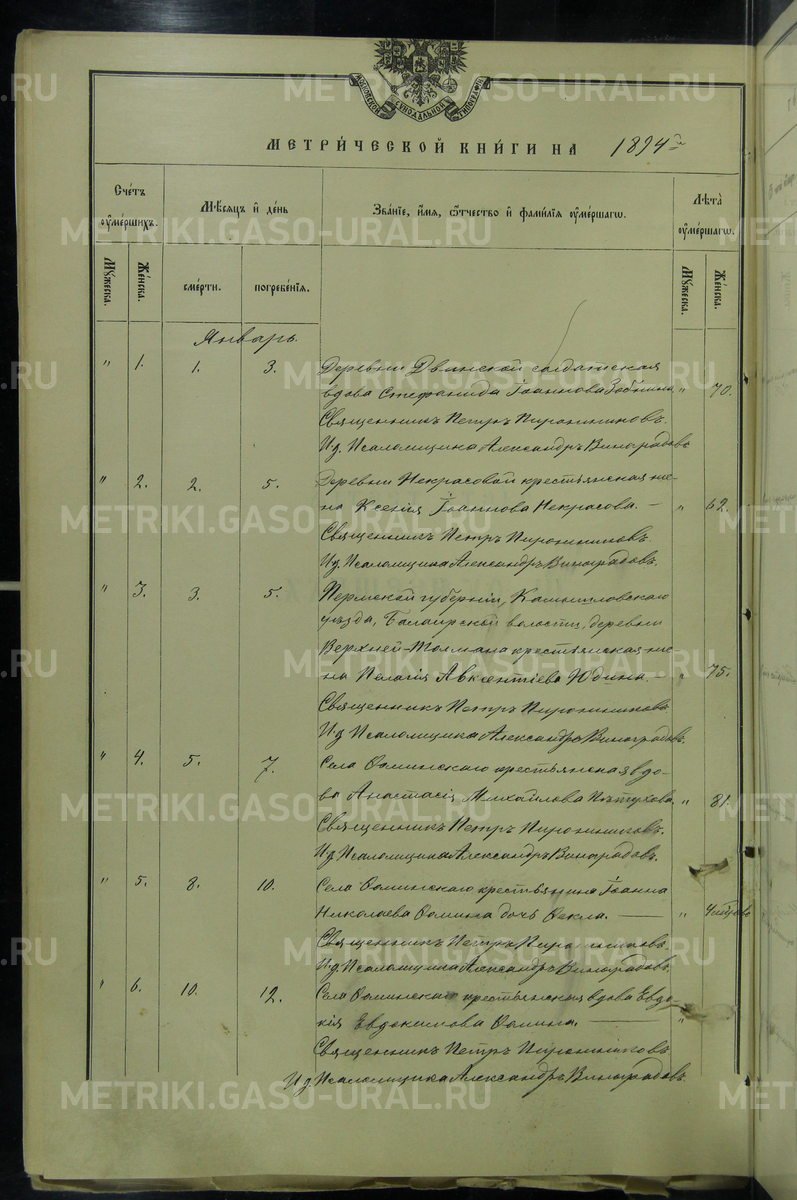 МОСКОВСКОЙ СУНОДАЛЬНОЙ ТИПОГРАФІИ
МЕТРИ́ЧЕСКОЙ КНИ́ГИ НА 1894 г.
Сче́тъ ᲂумéршихъ.
Мѣ́сяцъ и де́нь
Зва́нїе, и́мя, ѻ҆́тчество и фами́лїя ᲂумéршагѡ.
Лѣта̀ ᲂумéршагѡ.
Мꙋ́жеска.
Же́нска.
сме́рти.
погребе́нїя.
Мꙋ́жеска.
Же́нска.
Январь.
" 1. 1. 3. Деревни Двинской солдатская
вдова Стефанида Іоаннова " 70.
Священникъ Петръ
И.д. Псаломщика Александръ Виноградовъ
" 2. 2. 5. Деревни Некрасовой крестьянская же-
на Ксенія Іоаннова Некрасова. — " 62.
Священникъ Петръ
И.д. Псаломщика Александръ Виноградовъ.
" 3. 3. 5. Пермской губерніи, Камышловскаго
уѣзда, Балаирской волости, деревни
Верхней крестьянская же-
на Пелагія Авксентіева Юдина. — " 75.
Священникъ Петръ
И.д. Псаломщика Александръ Виноградовъ.
" 4. 5. 7. Села Ѳоминскаго крестьянская вдо-
ва Анастасія Михайлова Пѣтухова. " 81.
Священникъ Петръ
И.д. Псаломщика Александръ Виноградовъ.
" 5. 8. 10. Села Ѳоминскаго крестьянина Іоанна
Николаева Ѳомина дочь Ѳекла. — "
Священникъ Петръ
И.д. Псаломщика Александръ Виноградовъ.
" 6. 10. 12. Села Ѳоминскаго крестьянская вдова Евдо-
кія Евдокимова Ѳомина. — "
Священникъ Петръ
И.д. Псаломщика Александръ Виноградовъ
METRIKI.GASO-URAL.RU